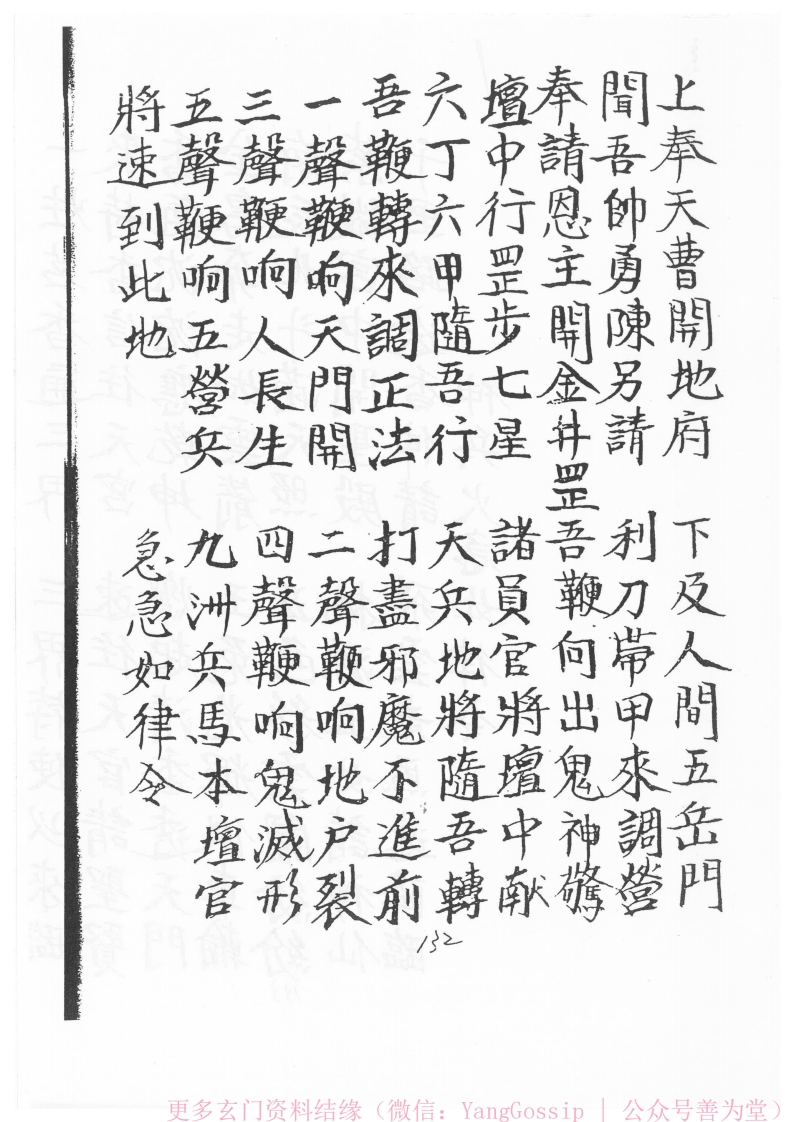 上奉天曹開地府 下及人間五岳門
聞吾帥勇陳另請 利刀帶甲來調營
奉請恩主開金井罡 吾鞭向出鬼神驚
壇中行罡步七星 諸員官將壇中献
六丁六甲隨吾行 天兵地將隨吾轉
吾鞭轉來調正法 打盡邪魔不進前
一聲鞭响天門開 二聲鞭响地户裂
三聲鞭响人長生 四聲鞭响鬼滅形
五聲鞭响五營兵 九洲兵馬本壇官
將速到此地 急急如律令
132
更多玄门资料结缘（微信：YangGossip | 公众号善为堂）